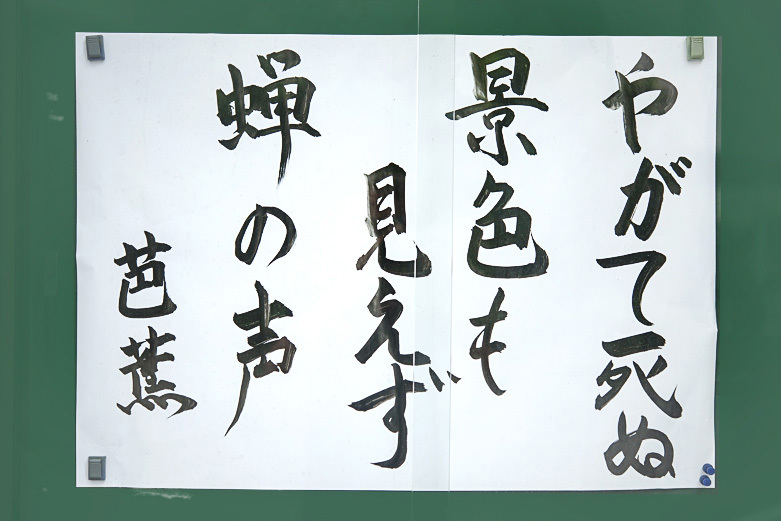 やがて死ぬ
景色も
見えず
蝉の声
芭蕉